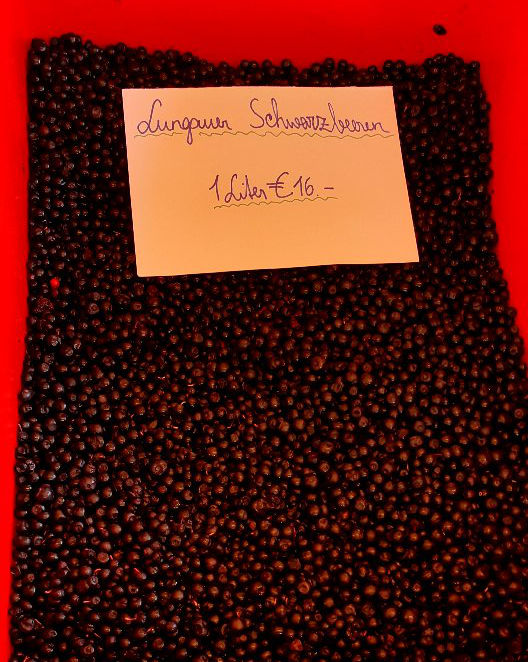 Lungauer Schwarzbeeren
1 Liter = € 16.-